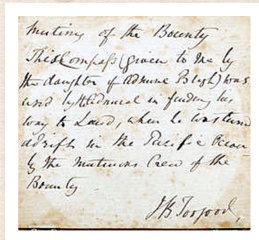 Mutiny of the Bounty
This Compass (given to me by
the daughter of Admiral Bligh) was
used by the Admiral in finding his
way to Land, when he was turned
adrift in the Pacific Ocean
by the mutinous Crew of the
Bounty
J.B. Toogood,